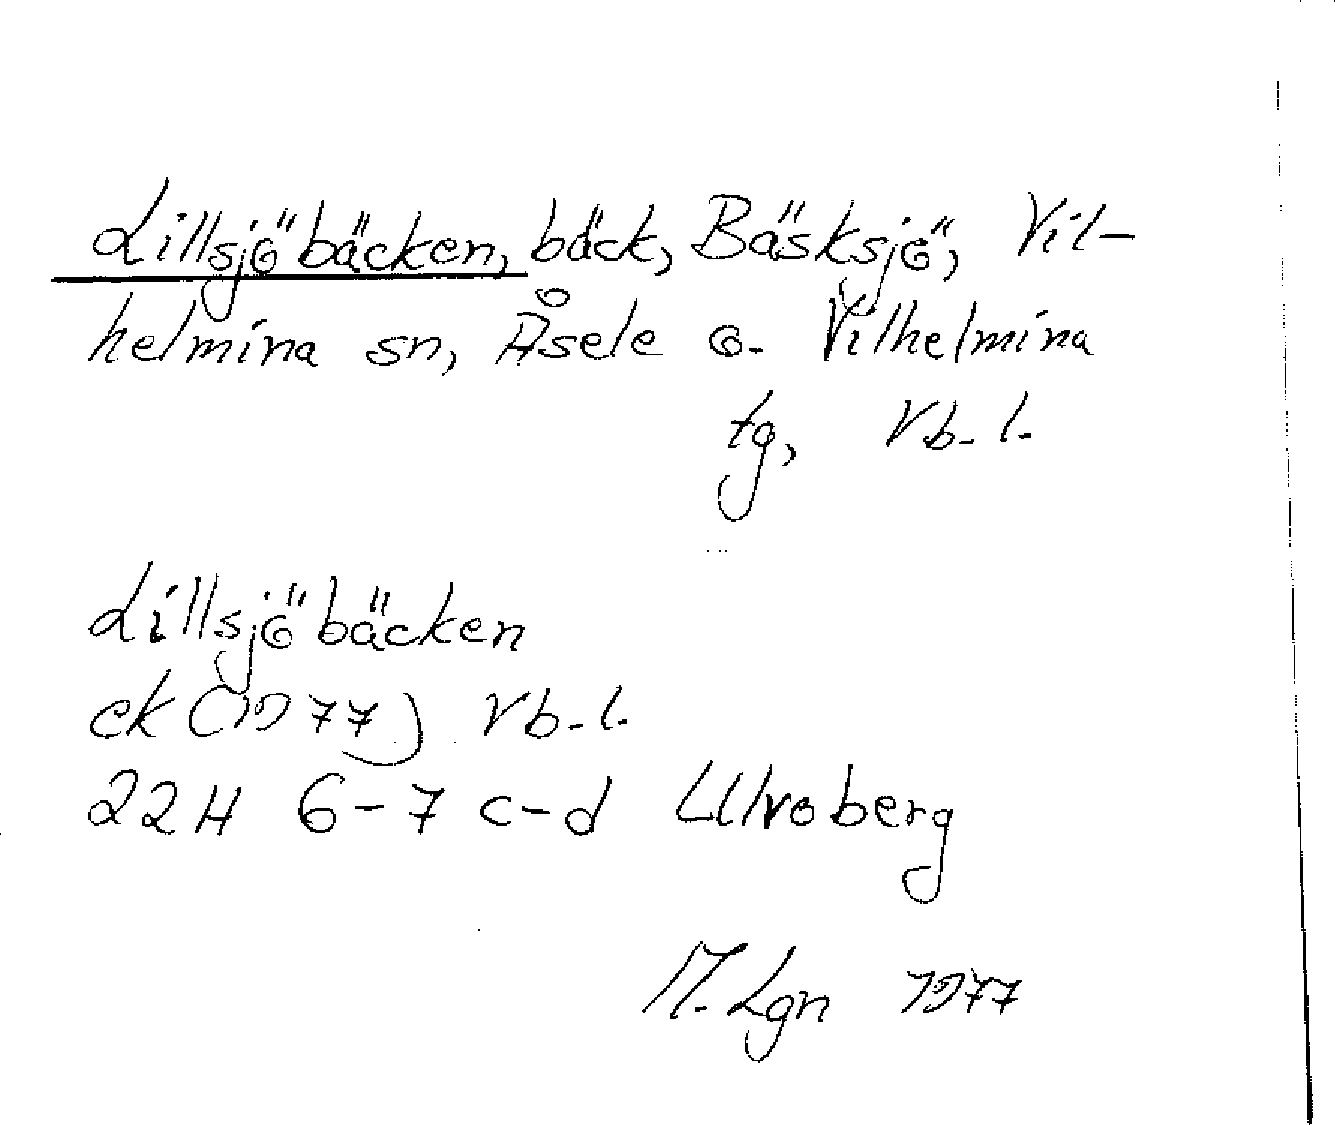 Lillsjöbäcken, bäck, Bäsksjö, Vil-
helmina sn, Åsele o. Vilhelmina
tg, Vb. l.
Lillsjöbäcken
ek (1977) Vb. l.
22H 6-7 c-d Ulvoberg
M. Lgn 1977